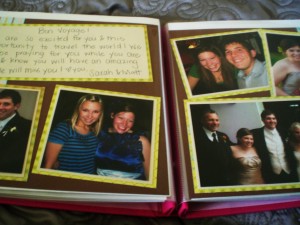 Bon Voyage!
are so excited for you & 
opportunity to travel the world! We
praying for you while you are
& know you will have an amazing
We will miss you!
Sarah &